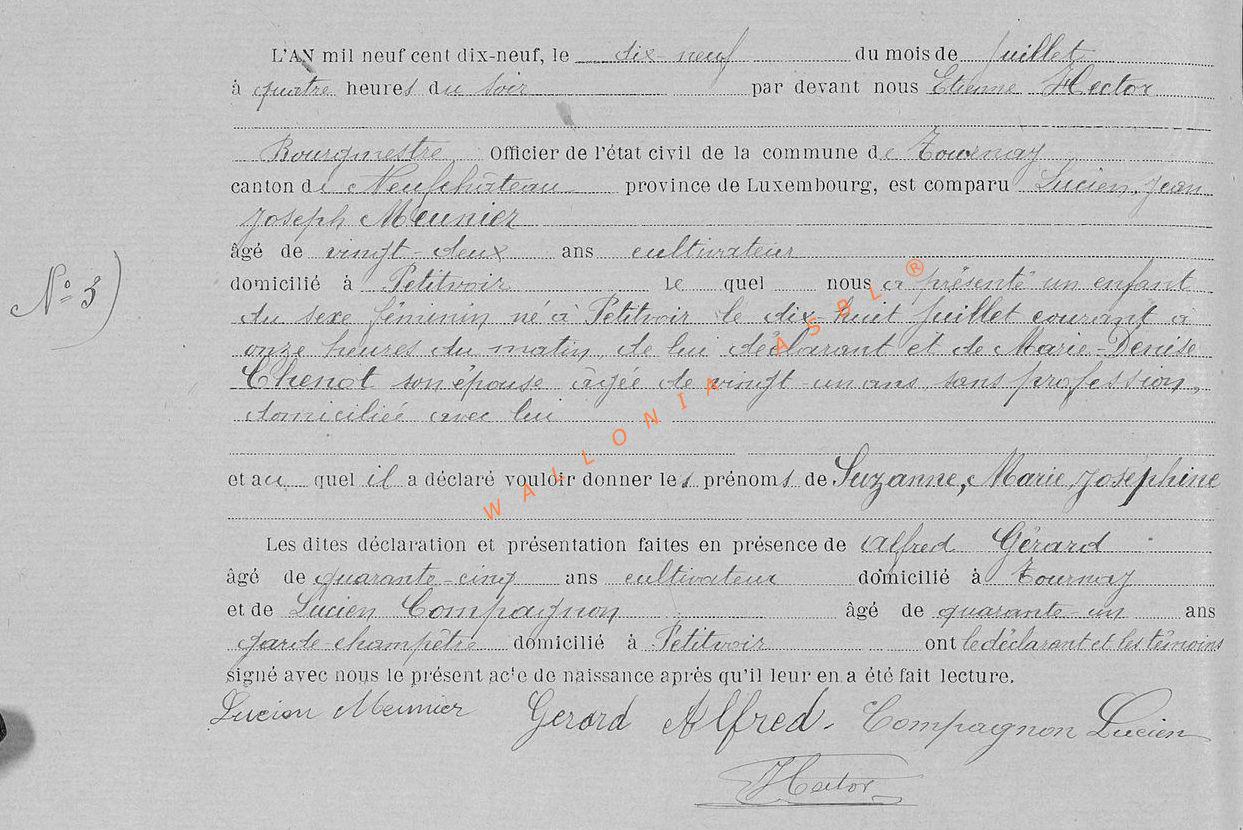 L'AN mil neuf cent dix-neuf, le dix-neuf du mois de Juillet
à quatre heures du soir par devant nous Etienne Hector
Bourgmestre Officier de l'état civil de la commune de Tournay
canton de Neufchâteau province de Luxembourg, est comparu Lucien, Jean
Joseph Meunier
âgé de vingt-deux ans cultivateur
domicilié à Petitvoir Le quel nous a présenté un enfant
N° 3)
du sexe féminin né à Petitvoir le dix huit Juillet courant à
onze heures du matin de lui déclarant et de Marie-Denise
Chenot son épouse âgée de vingt-un ans sans profession,
domiciliée avec lui
et au quel il a déclaré vouloir donner les prénoms de Suzanne, Marie, Josephine
Les dites déclaration et présentation faites en présence de Alfred Gérard
âgé de quarante-cinq ans cultivateur domicilié à Tournay
et de Lucien Compagnon âgé de quarante-un ans
garde-champêtre domicilié à Petitvoir ont le déclarant et les témoins
signé avec nous le présent acte de naissance après qu'il leur en a été fait lecture.
Lucien Meunier Gerard Alfred. Compagnon Lucien
Hector
WALLONIA ASBL ®